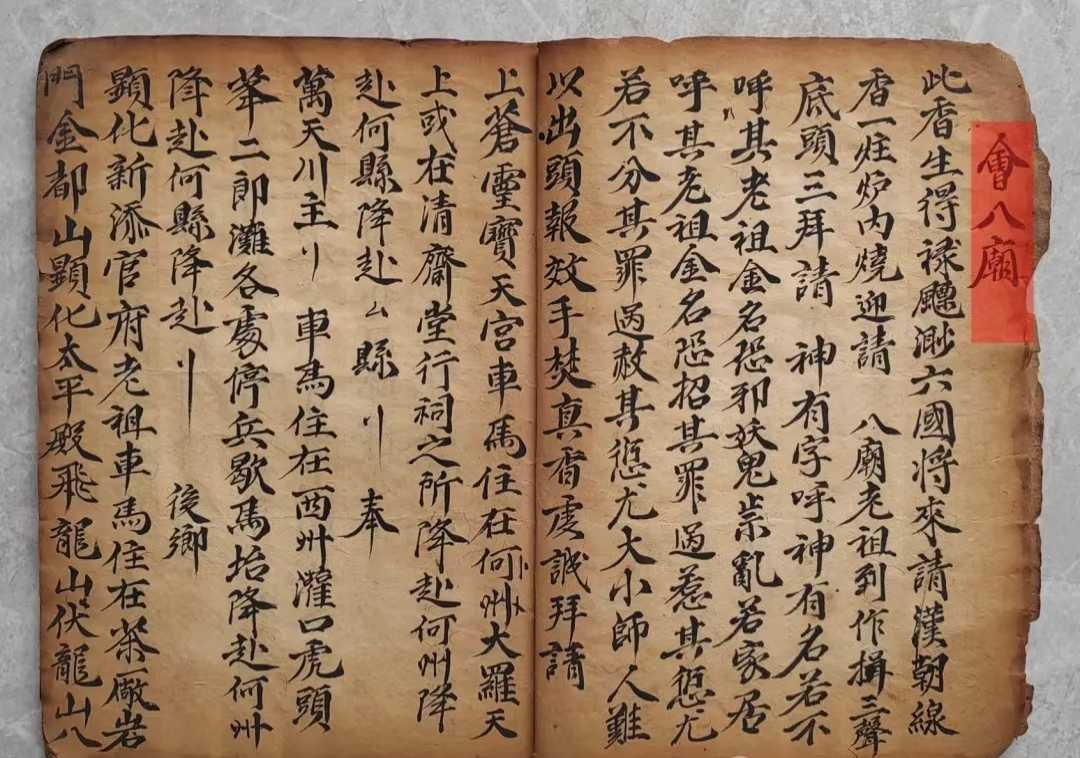 會八廟
此香生得祿飄渺六國將來請漢朝線
香一炷炉內燒迎請 八廟老祖到作揖三聲
底頭三拜請 神有字呼神有名若不
呼其老祖金名恐邪妖鬼祟亂若家居
呼其老祖金名恐招其罪過惹其愆尤
若不分其罪過赦其愆尤大小師人難
以出頭報效手焚真香虔誠拜請
上蒼靈寶天宮車馬住在何州大羅天
上或在清齋堂行祠之所降赴何州降
赴何縣降赴厶縣刂 奉
萬天川主刂 車馬住在西州灌口虎頭
峯二郎灘各處停兵歇馬抬降赴何州
降赴何縣降赴刂 後鄉
顯化新添官府老祖車馬住在茶厰岩
門金都山顯化太平殿飛龍山伏龍山八